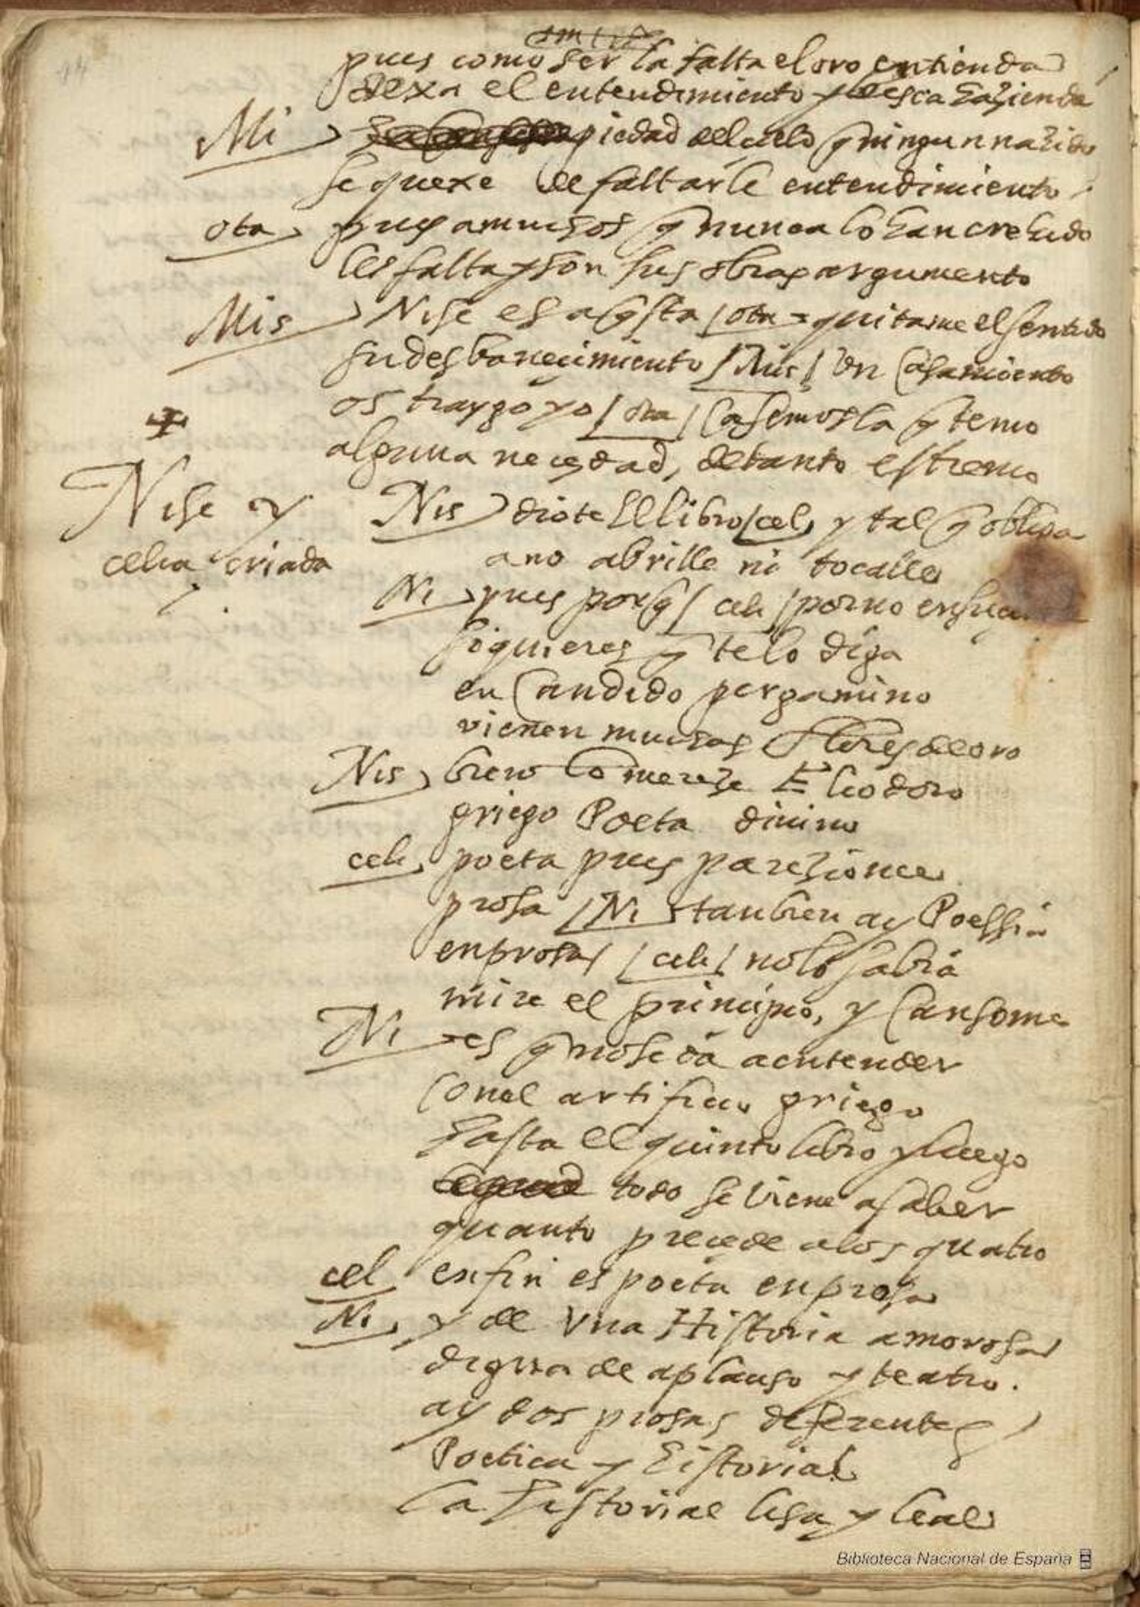 14
pues como ser la falta el oro entienda
dexa el entendimiento y besca hazienda
Mi piedad del cielo q̃ ningun nazido
se quexe de faltarle entendimiento
ota pues a muchos q̃ nunca lo han crehido
les falta y son sus obras argumento
Mis Nise es aq̃sta / ota quitame el sentido
su desbanecimiento / Mis / Un Casamiento
os traygo yo / ota / Casemosla q̃ temo
alguna necedad, de tanto estremo
Nise y
celia criada
Nis diote El libro / cel y tal q̃ obliga
a no abrille ni tocalle
Ni pues porq̃ / celi / por no
si quieres q̃ te lo diga
en Candido pergamino
vienen muchas flores de oro
Nis bien lo mereze Eliodoro
griego Poeta diuino
celi poeta pues parezionce
prosa / Ni tanbien ay Poessia
en prosa / celi / no lo sabia
mire el principio, y Cansome
Ni es q̃ no se da a entender
Con el artificio griego
hasta el quinto libro y luego
todo se viene a saber
quanto precede a los quatro
cel en fin es poeta en prosa
Ni y de Vna Historia amorosa
digna de aplauso y teatro.
ay dos prosas diferentes
Poetica y historial
la historial lisa y leal
Biblioteca Nacional de España